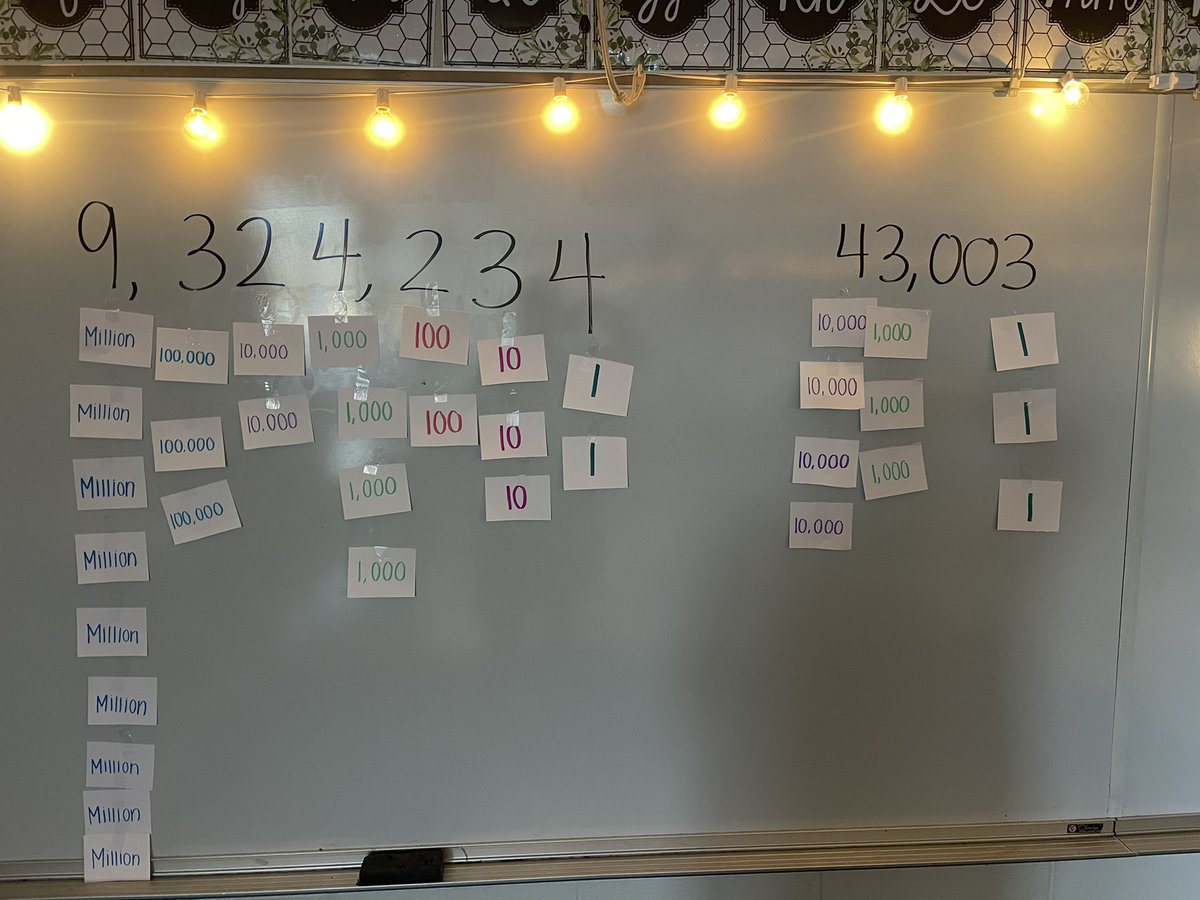 9,324,234 43,003
Million 100,000 10,000 1,000 100 10 1 10,000 1,000 1
Million 100.000 10.000 1,000 100 10 1 10,000 1,000 1
Million 100,000 1,000 10 10,000 1,000 1
Million 1,000 10.000
Million
Million
Million
Million
Million